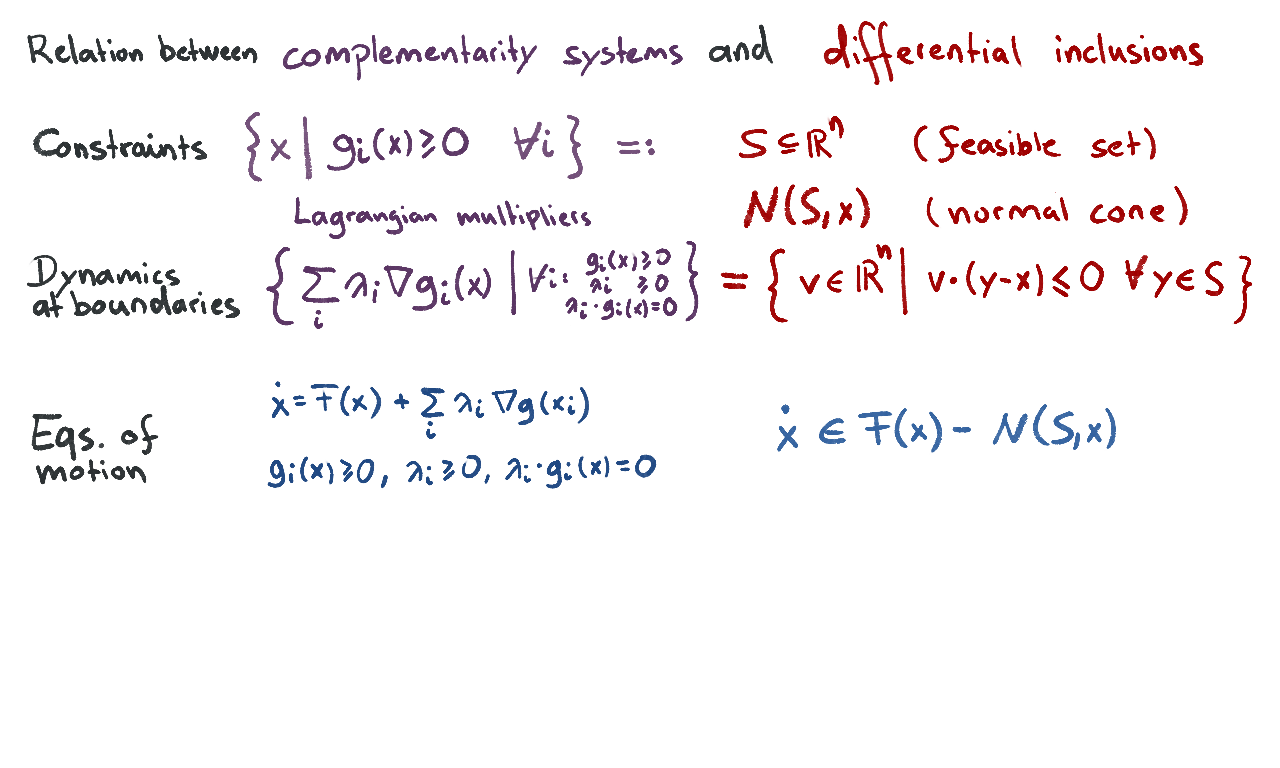 Relation between complementarity systems and differential inclusions
Constraints {x | gᵢ(x) ≥ 0 ∀i} =: S ⊆ ℝⁿ (feasible set)
Lagrangian multipliers N(S,x) (normal cone)
Dynamics at boundaries { ∑ᵢ λᵢ ∇gᵢ(x) | ∀i: gᵢ(x) ≥ 0 λᵢ ≥ 0 λᵢ · gᵢ(x) = 0 } = { v ∈ ℝⁿ | v·(y-x) ≤ 0 ∀y ∈ S }
Eqs. of motion
ẋ = F(x) + ∑ᵢ λᵢ ∇g(xᵢ)
gᵢ(x) ≥ 0, λᵢ ≥ 0, λᵢ · gᵢ(x) = 0
ẋ ∈ F(x) - N(S,x)